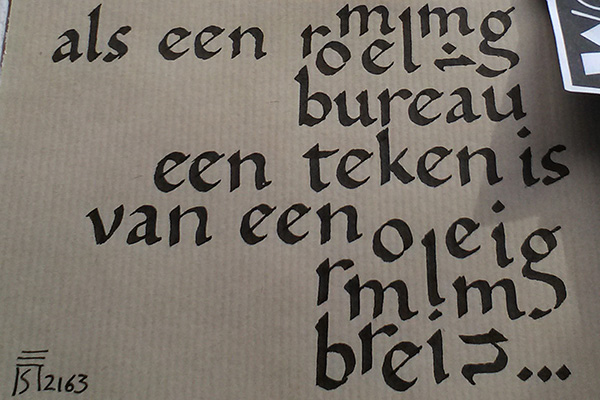 als een rommelig
bureau
een teken is
van een rommelig
brein...
2163